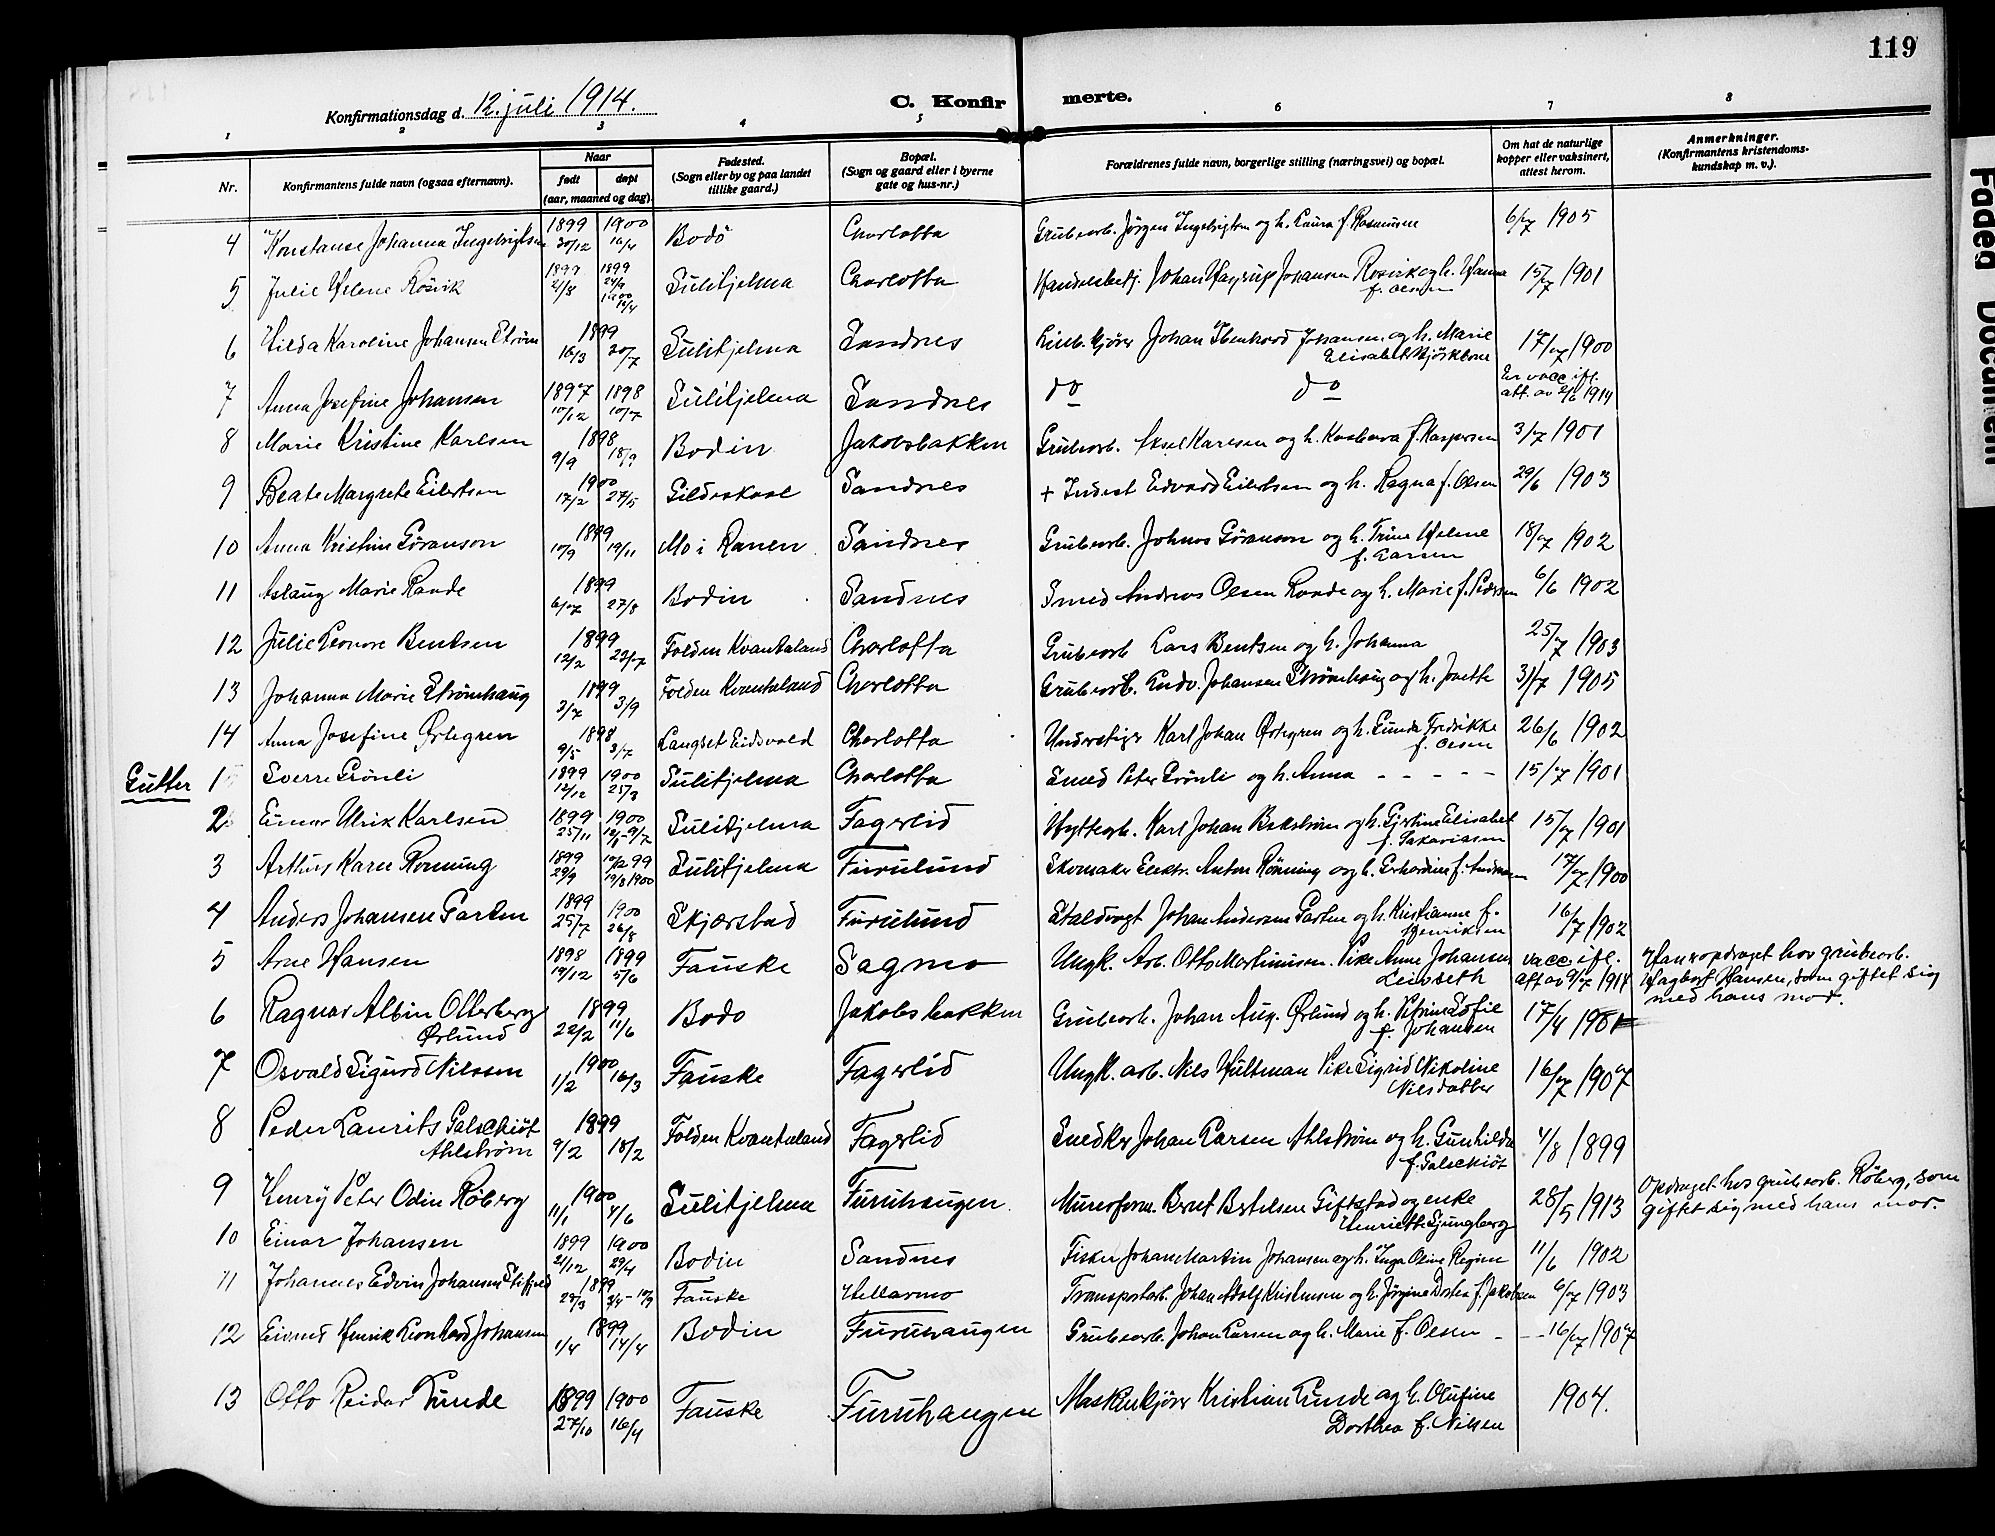 119
Konfirmationsdag d. 12. juli 1914.
C. Konfir merte.
1 2 3 4 5 6 7 8
Nr.
Konfirmantens fulde navn (ogsaa efternavn).
Naar
født døpt
(aar, maaned og dag).
Fødested.
(Sogn eller by og paa landet
tillike gaard.)
Bopæl.
(Sogn og gaard eller i byerne
gate og hus-nr.)
Forældrenes fulde navn, borgerlige stilling (næringsvei) og bopæl.
Om hat de naturlige
kopper eller vaksinert,
attest herom.
Anmerkninger.
(Konfirmantens kristendoms-
kundskap m. v.).
4 Konstanse Johanna Ingebrigtsen 1899 30/12 1900 16/4 Bodö Charlotta Grubearb. Jörgen Ingebrigtsen og h. Laura f. Rasmussen 6/7 1905
5 Julie Helene Rösvik 1899 2/8 1899 24/9 1900 Sulitjelma Charlotta Handelsbetj. Johan Johansen Rosvik og h. Hanna f. Olsen 15/7 1901
6 Hilda Karoline Johansen Ström 1899 16/3 30/7 Sulitjelma Sandnes Johan Johansen og h. Marie Elisabet 17/7 1900
7 Anna Josefine Johansen 1897 10/12 1898 10/7 Sulitjelma Sandnes do do Er vacc. ifl. att. av 2/6 1914
8 Marie Kristine Karlsen 1898 9/9 18/9 Bodin Jakobsbakken Grubearb. Aksel Karlsen og h. f. Kaspersen 3/7 1901
9 Beate Margrete Eilertsen 1900 17/2 27/5 Gildeskaal Sandnes + Inderst Edvard Eilertsen og h. Ragna f. Olsen 29/6 1903
10 Anna Kristine Göranson 1899 10/9 19/11 Mo i Ranen Sandnes Grubearb. Johnas Göranson og h. Trine Helene f. Larsen 18/7 1902
11 Aslaug Marie Rande 1899 6/7 27/8 Bodin Sandnes Smed Andreas Olsen Rande og h. Marie f. Pedersen 6/6 1902
12 Julie Leonore Bentsen 1899 12/2 23/7 Folden Kvantaland Charlotta Grubearb Lars Bentsen og h. Johanna 25/7 1903
13 Johanna Marie Strömhaug 1899 3/7 3/9 Folden Kvantaland Charlotta Grubearb. Ludv. Johansen Strömhaug og h. 31/7 1905
14 Anna Josefine Örtegren 1898 9/5 3/7 Langset Eidsvold Charlotta Understiger Karl Johan Örtegren og h. Gunda Fredrikke f. Olsen 26/6 1902
Gutter
1 Sverre Grönli 1899 12/12 1900 25/3 Sulitjelma Charlotta Smed Peter Grönli og h. Anna - - - - - 15/7 1901
2 Einar Ulrik Karlsen 1899 25/11 1900 Sulitjelma Fagerlid Hyttearb. Karl Johan Bekström og h. Gjertine Elisabet f. Sakariassen 15/7 1901
3 Arthur Karer Ronning 1899 29/9 10/12 99 19/8 1900 Sulitjelma Furulund Skomaker Elektr. Anton Rönning og h. Gerhardine f. Andersen 17/7 1900
4 Anders Johansen Garten 1899 25/7 1900 26/8 Skjærstad Furulund Staldvogt Johan Andersen Garten og h. Kristianne f. Henriksen 16/7 1902
5 Arne Hansen 1898 19/12 1899 5/6 Fauske Sagmo Ungk. Arb. Otto Martinussen. Pike Anne Johansen Leivseth vacc. ifl. att av 9/7 1914 Han er opdraget hos grubearb. Hagbart Hansen, som giftet sig med hans mor.
6 Ragnar Albin Otterberg Ørlund 1899 22/2 11/6 Bodo Jakobsbakken Grubearb. Johan Aug. Ørlund og h. Petrine Sofie f. Johansen 17/4 1901
7 Osvald Sigurd Nilssen 1900 1/2 16/3 Fauske Fagerlid Ungk. arb. Nils Hultman Pike Sigrid Nikoline Nilsdatter 16/7 1907
8 Peder Laurits Galschiöt Ahlström 1899 9/2 18/2 Folden Kvantaland Fagerlid Snedker Johan Larsen Ahlström og h. Gunhilda f. Galschiöt 4/8 1899
9 Henry Peter Odin Röberg 1900 11/1 4/6 Sulitjelma Furuhaugen Murerform. Beret Bertelsen Giftstad og enke Henriette Ljungberg 28/5 1913 Opdraget hos grubearb. Röberg, som giftet sig med hans mor.
10 Einar Johansen 1899 21/12 1900 29/4 Bodin Sandnes Fisker Johan Martin Johansen og h. Inga Oline Regine 11/6 1902
11 Johannes Edvin Johansen 1899 23/3 Fauske Hellarmo Transportarb. Johan Adolf Kristensen og h. Jörgine Dortea f. Jakobsen 6/7 1903
12 Eivind Henrik Leonhard Johansen 1899 1/4 14/4 Bodin Furuhaugen Grubearb. Johan Larsen og h. Marie f. Olsen - - - 16/7 1907
13 Otto Reidar Lunde 1899 27/10 1900 16/4 Fauske Furuhaugen Maskinkjörer Kristian Lunde og h. Olufine Dorthea f. Nilsen 1904.
Faded Document